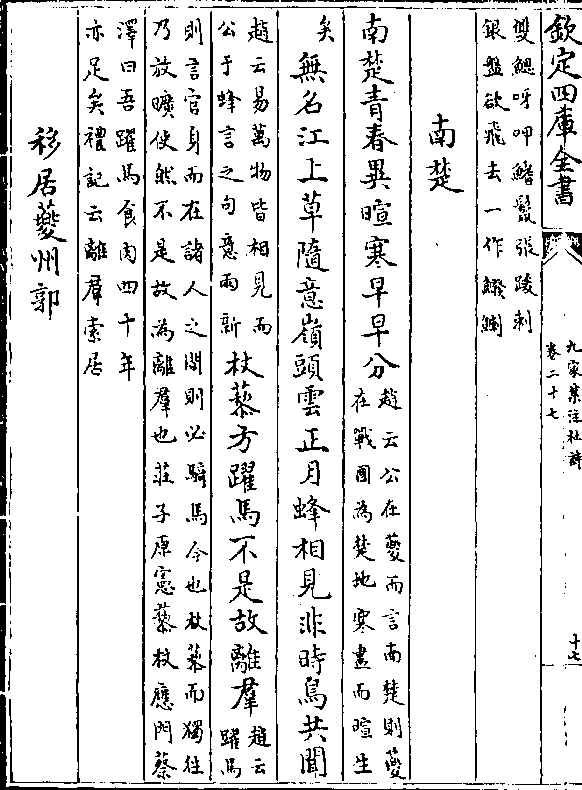 欽定四庫全書
九家集注杜詩
卷二十七
十七
雙鰓呀呷鰭鬛張跋刺
銀盤欲飛去一作鱍鯻
南楚
南楚青春異暄寒早早分
趙云公在夔而言南楚則夔
在戰國為楚地寒盡而暄生
矣
無名江上草隨意嶺頭雲正月蜂相見非時鳥共聞
趙云易萬物皆相見而
公于蜂言之句意兩新
杖藜方躍馬不是故離羣
趙云
躍馬
則言官身而在諸人之間則必騎馬今也杖藜而獨往
乃放曠使然不是故為離羣也莊子原憲藜杖應門蔡
澤曰吾躍馬食肉四十年
亦足矣禮記云離羣索居
移居夔州郭